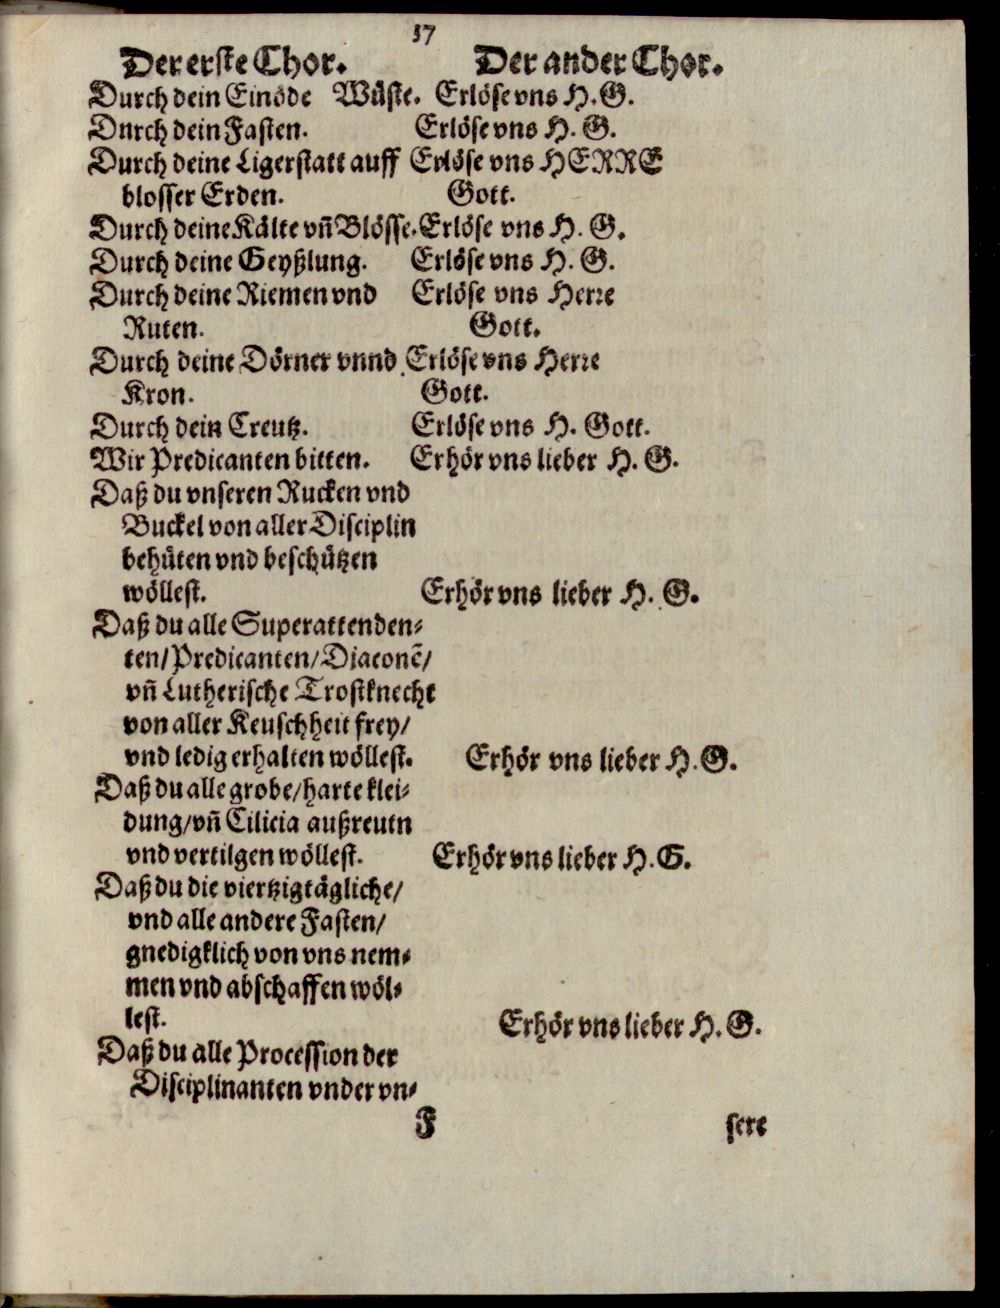 37
Der erste Chor. Der ander Chor.
Durch dein Einöde Wüste. Erlöse vns H. G.
Dnrch dein Fasten. Erlöse vns H. G.
Durch deine Ligerstatt auff Erlöse vns HERRE
blosser Erden. Gott.
Durch deine Kälte vñ Blösse. Erlöse vns H. G.
Durch deine Geyßlung. Erlöse vns H. G.
Durch deine Riemen vnd Erlöse vns Herre
Ruten. Gott.
Durch deine Dörner vnnd Erlöse vns Herre
Kron. Gott.
Durch dein Creutz. Erlöse vns H. Gott.
Wir Predicanten bitten. Erhör vns lieber H. G.
Daß du vnseren Rucken vnd
Buckel von aller Disciplin
behüten vnd beschützen
wöllest. Erhör vns lieber H. G.
Daß du alle Superattenden⸗
ten/Predicanten/Diaconē/
vñ Lutherische Trostknecht
von aller Keuschheit frey/
vnd ledig erhalten wöllest. Erhör vns lieber H. G.
Daß du alle grobe/harte klei⸗
dung/vñ Cilicia außreutn
vnd vertilgen wöllest. Erhör vns lieber H. G.
Daß du die viertzigtägliche/
vnd alle andere Fasten/
gnedigklich von vns nem⸗
men vnd abschaffen wöl⸗
lest. Erhör vns lieber H. G.
Daß du alle Procession der
Disciplinanten vnder vn⸗
F sere